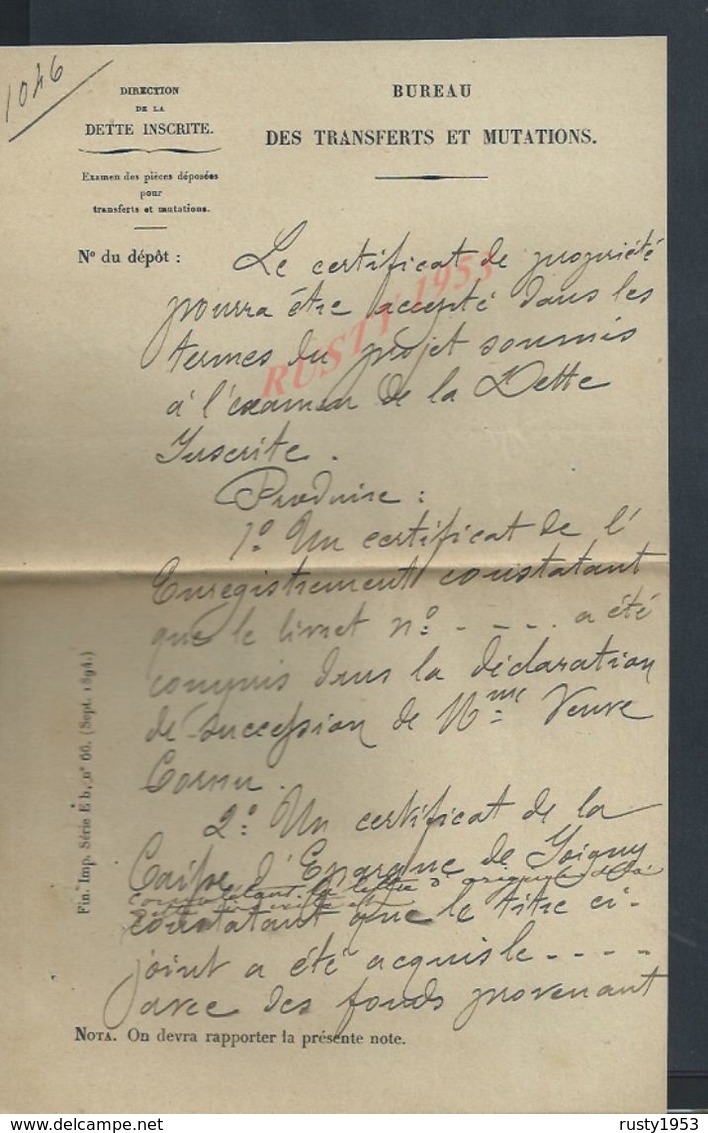 1046
DIRECTION
DE LA
DETTE INSCRITE.
Examen des pièces déposées
pour
transferts et mutations.
BUREAU
DES TRANSFERTS ET MUTATIONS.
N° du dépôt :
Le certificat de propriété
pourra être accepté dans les
termes du projet soumis
à l'examen de la Dette
Inscrite.
Produire :
1° Un certificat de l'
Enregistrement constatant
que le livret n° - - - . a été
compris dans la déclaration
de succession de Mme Veuve
Cornu.
2° Un certificat de la
Caisse d'Epargne de Joigny
constatant que le titre ci-
joint a été acquis le - - - -
avec des fonds provenant
NOTA. On devra rapporter la présente note.
Fin. Imp. Série E b, n° 66. (Sept. 1894.)
RUSTY 1953
DELCAMPE.NET
rusty1953